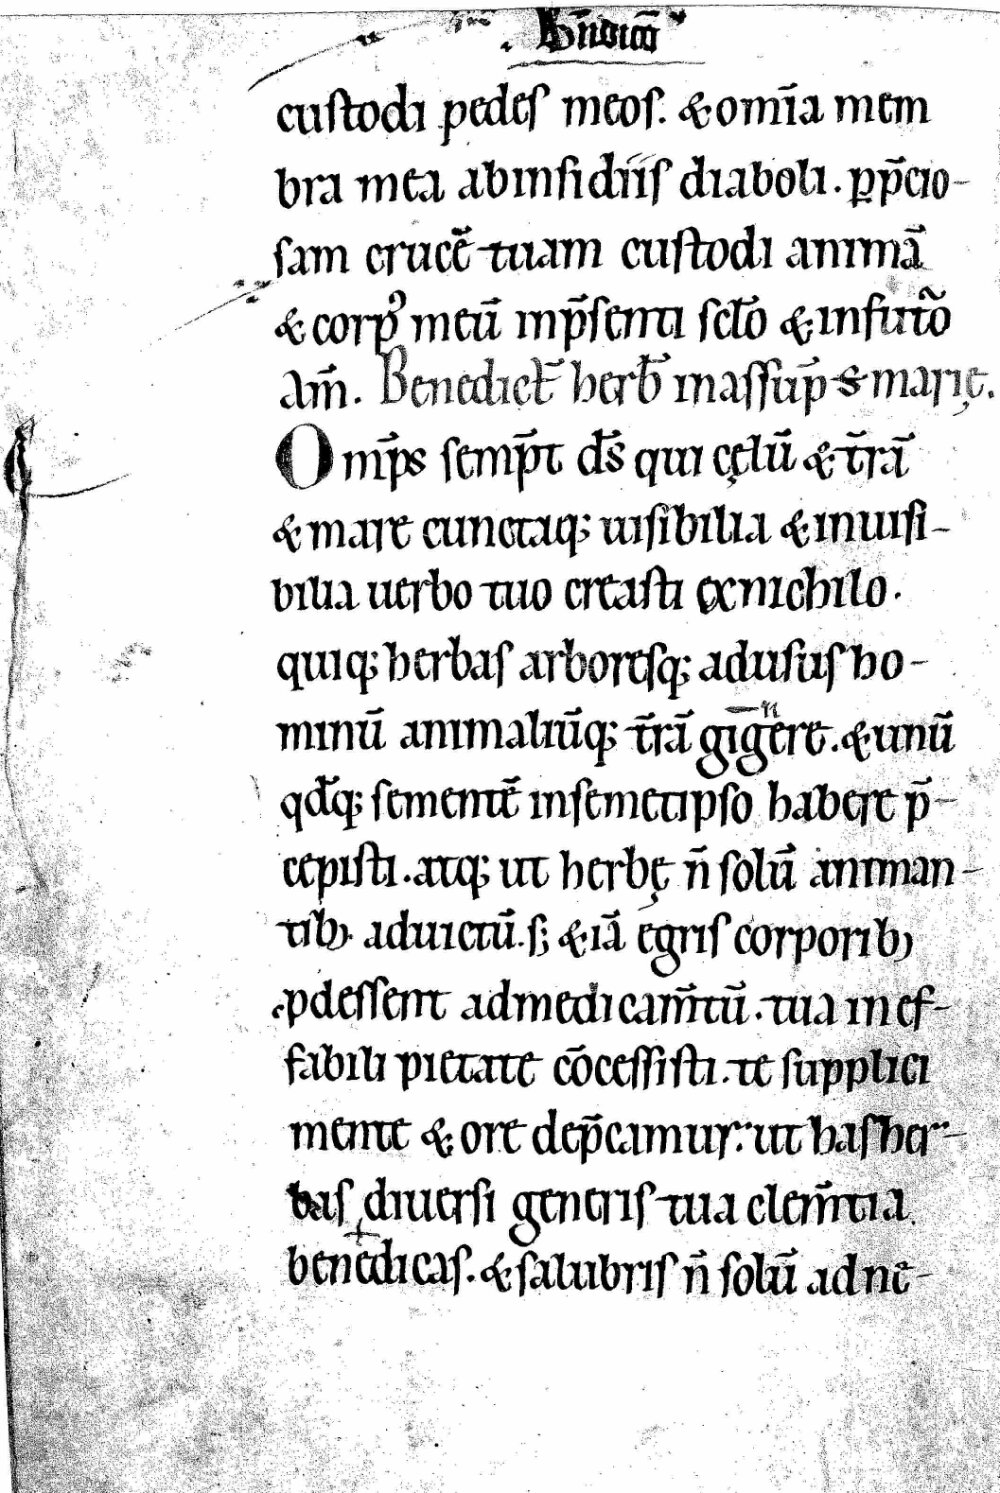 custodi pedes meos. & om̄ia mem
bra mea ab insidiis diaboli. ꝑ p̄cio-
sam crucē tuam custodi animā
& corpꝰ meū in p̄senti sc̄lo & in futuro
am̄. Benedict̄ herb̄ in assup̄ s marię.
Omp̄s semp̄t d̄s qui cęlū & t̄rā
& mare cunctaq; uisibilia & inuisi-
bilia uerbo tuo creasti ex nichilo.
quiq; herbas arboresq; ad usus ho-
minū animaliūq; t̄rā gignere. & unū
qd̄q; sementē in semetipso habere p̄-
cepisti. atq; ut herbę n̄ solū animan-
tib; ad uictū. s; & iā egris corporib;
ꝓdessent ad medicam̄tū. tua inef-
fabili pietate c̄ocessisti. te supplici
mente & ore dep̄camur. ut has her-
bas diuersi generis tua clem̄tia
benedicas. & salubris n̄ solū ad ne-